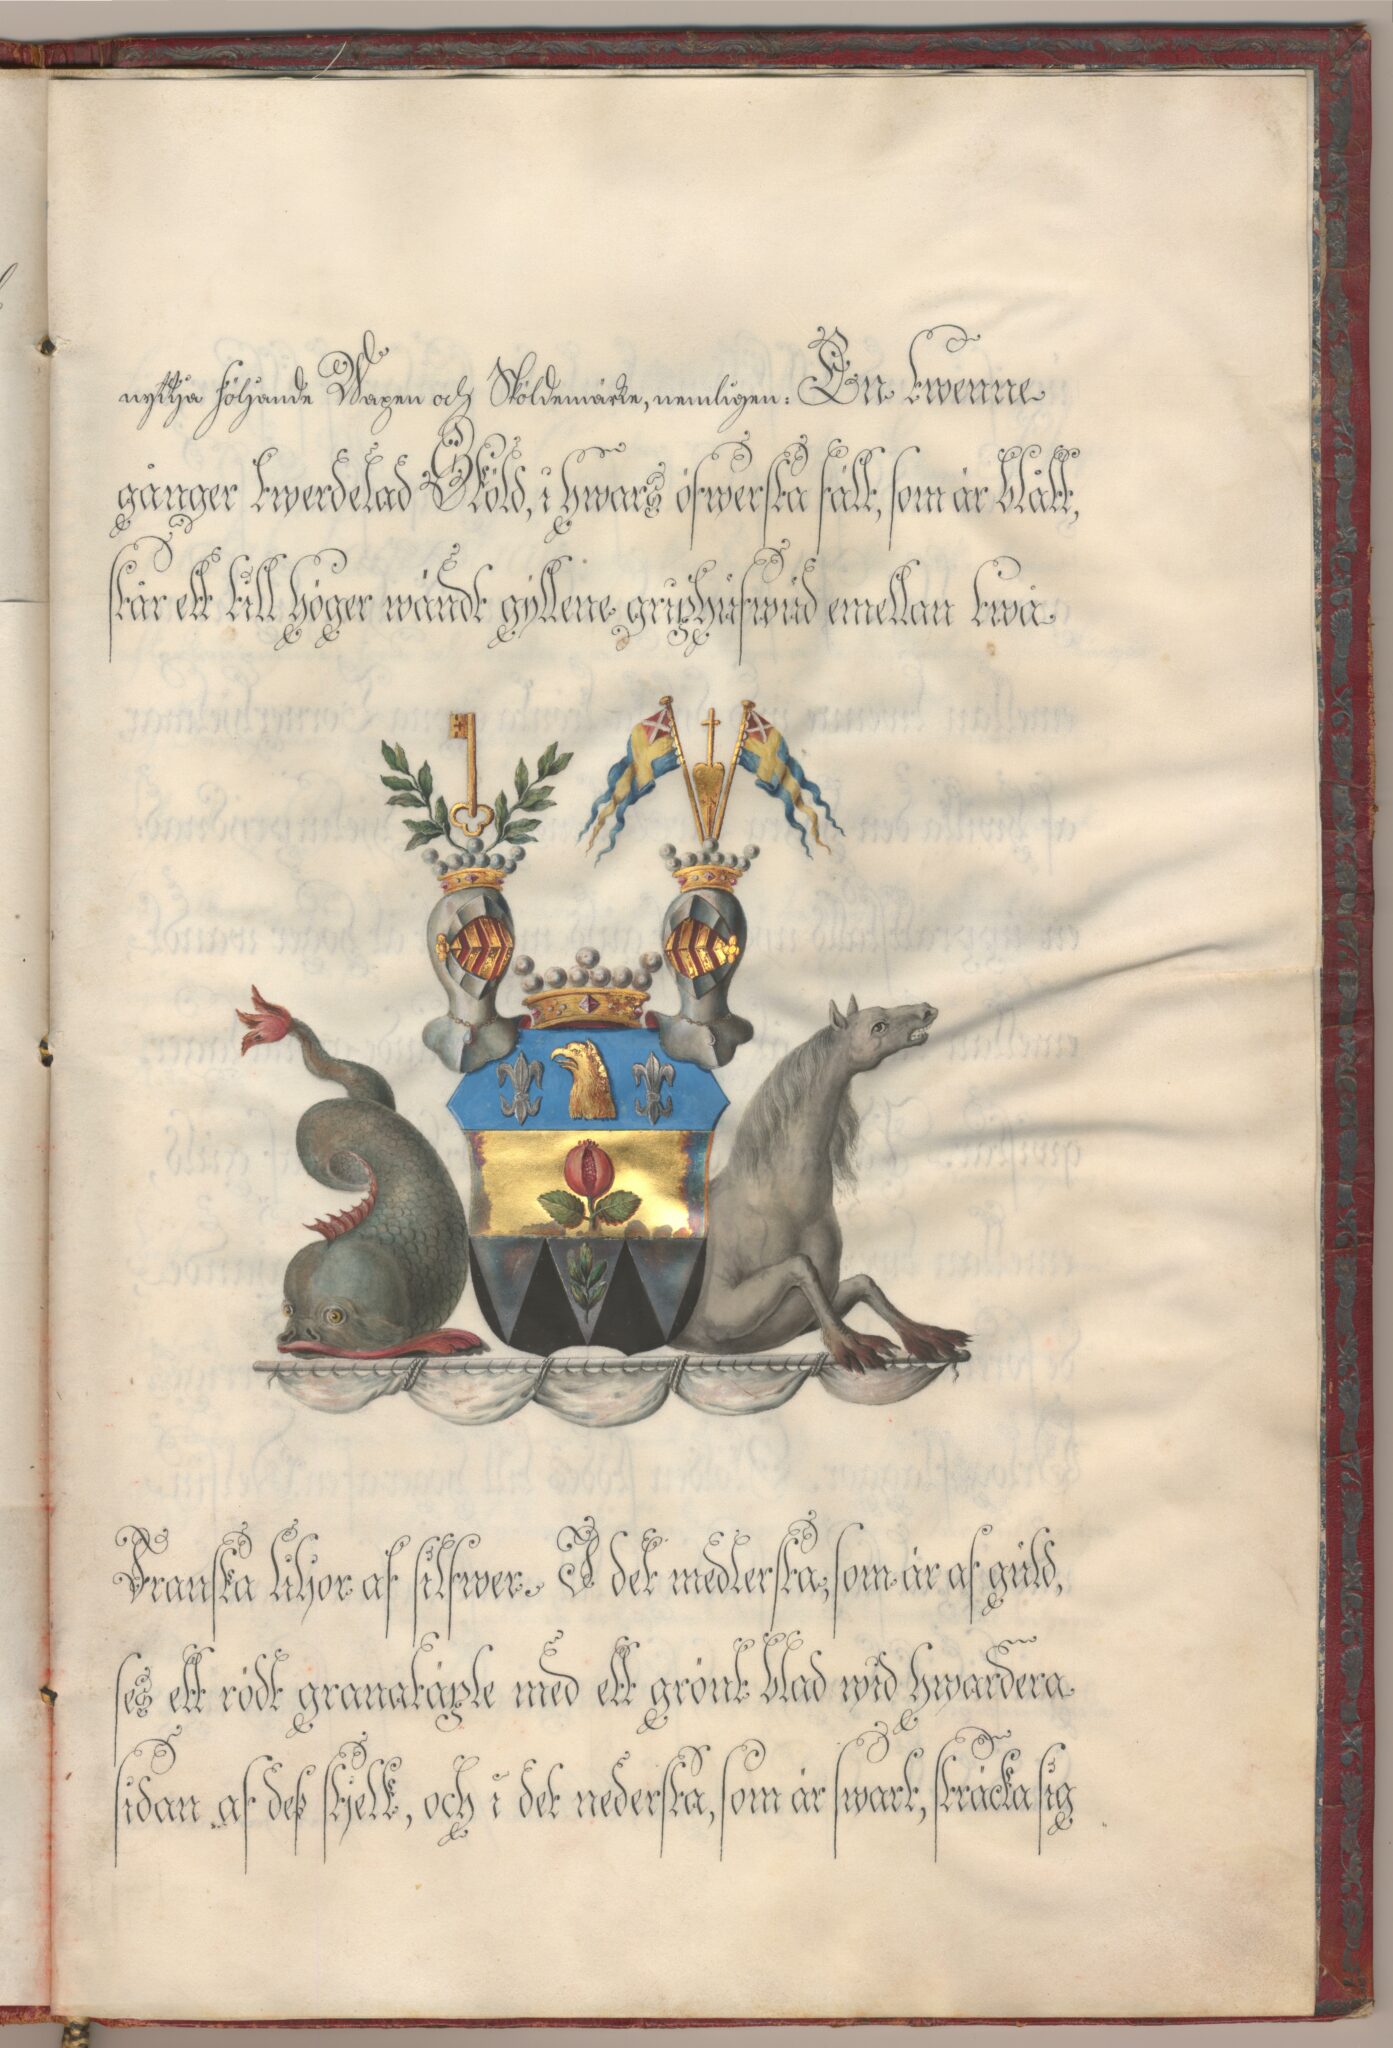 nyttja följande Wapen och Sköldemärke, nemligen: En twenne
gånger twerdelad Sköld, i hwars öfwersta fält, som är blått,
står ett till höger wändt gyllene griphufwud emellan twå
Franska liljor af silfwer. I det medlersta, som är af guld,
ses ett rödt granatäple med ett grönt blad wid hwardera
sidan af deß stjelk, och i det nedersta, som är swart, sträcka sig